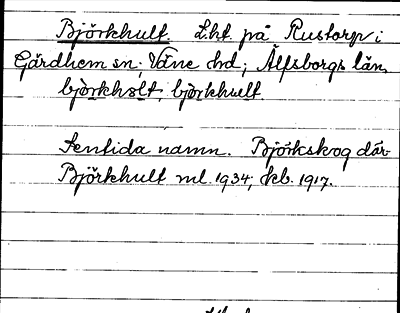 Björkhult. Lht. på Rustorp i
Gärdhem sn; Väne hd; Älfsborgs län.
björkholt, björkhult.
Sentida namn. Björkskog där
Björkhult ml. 1934; kb. 1917.